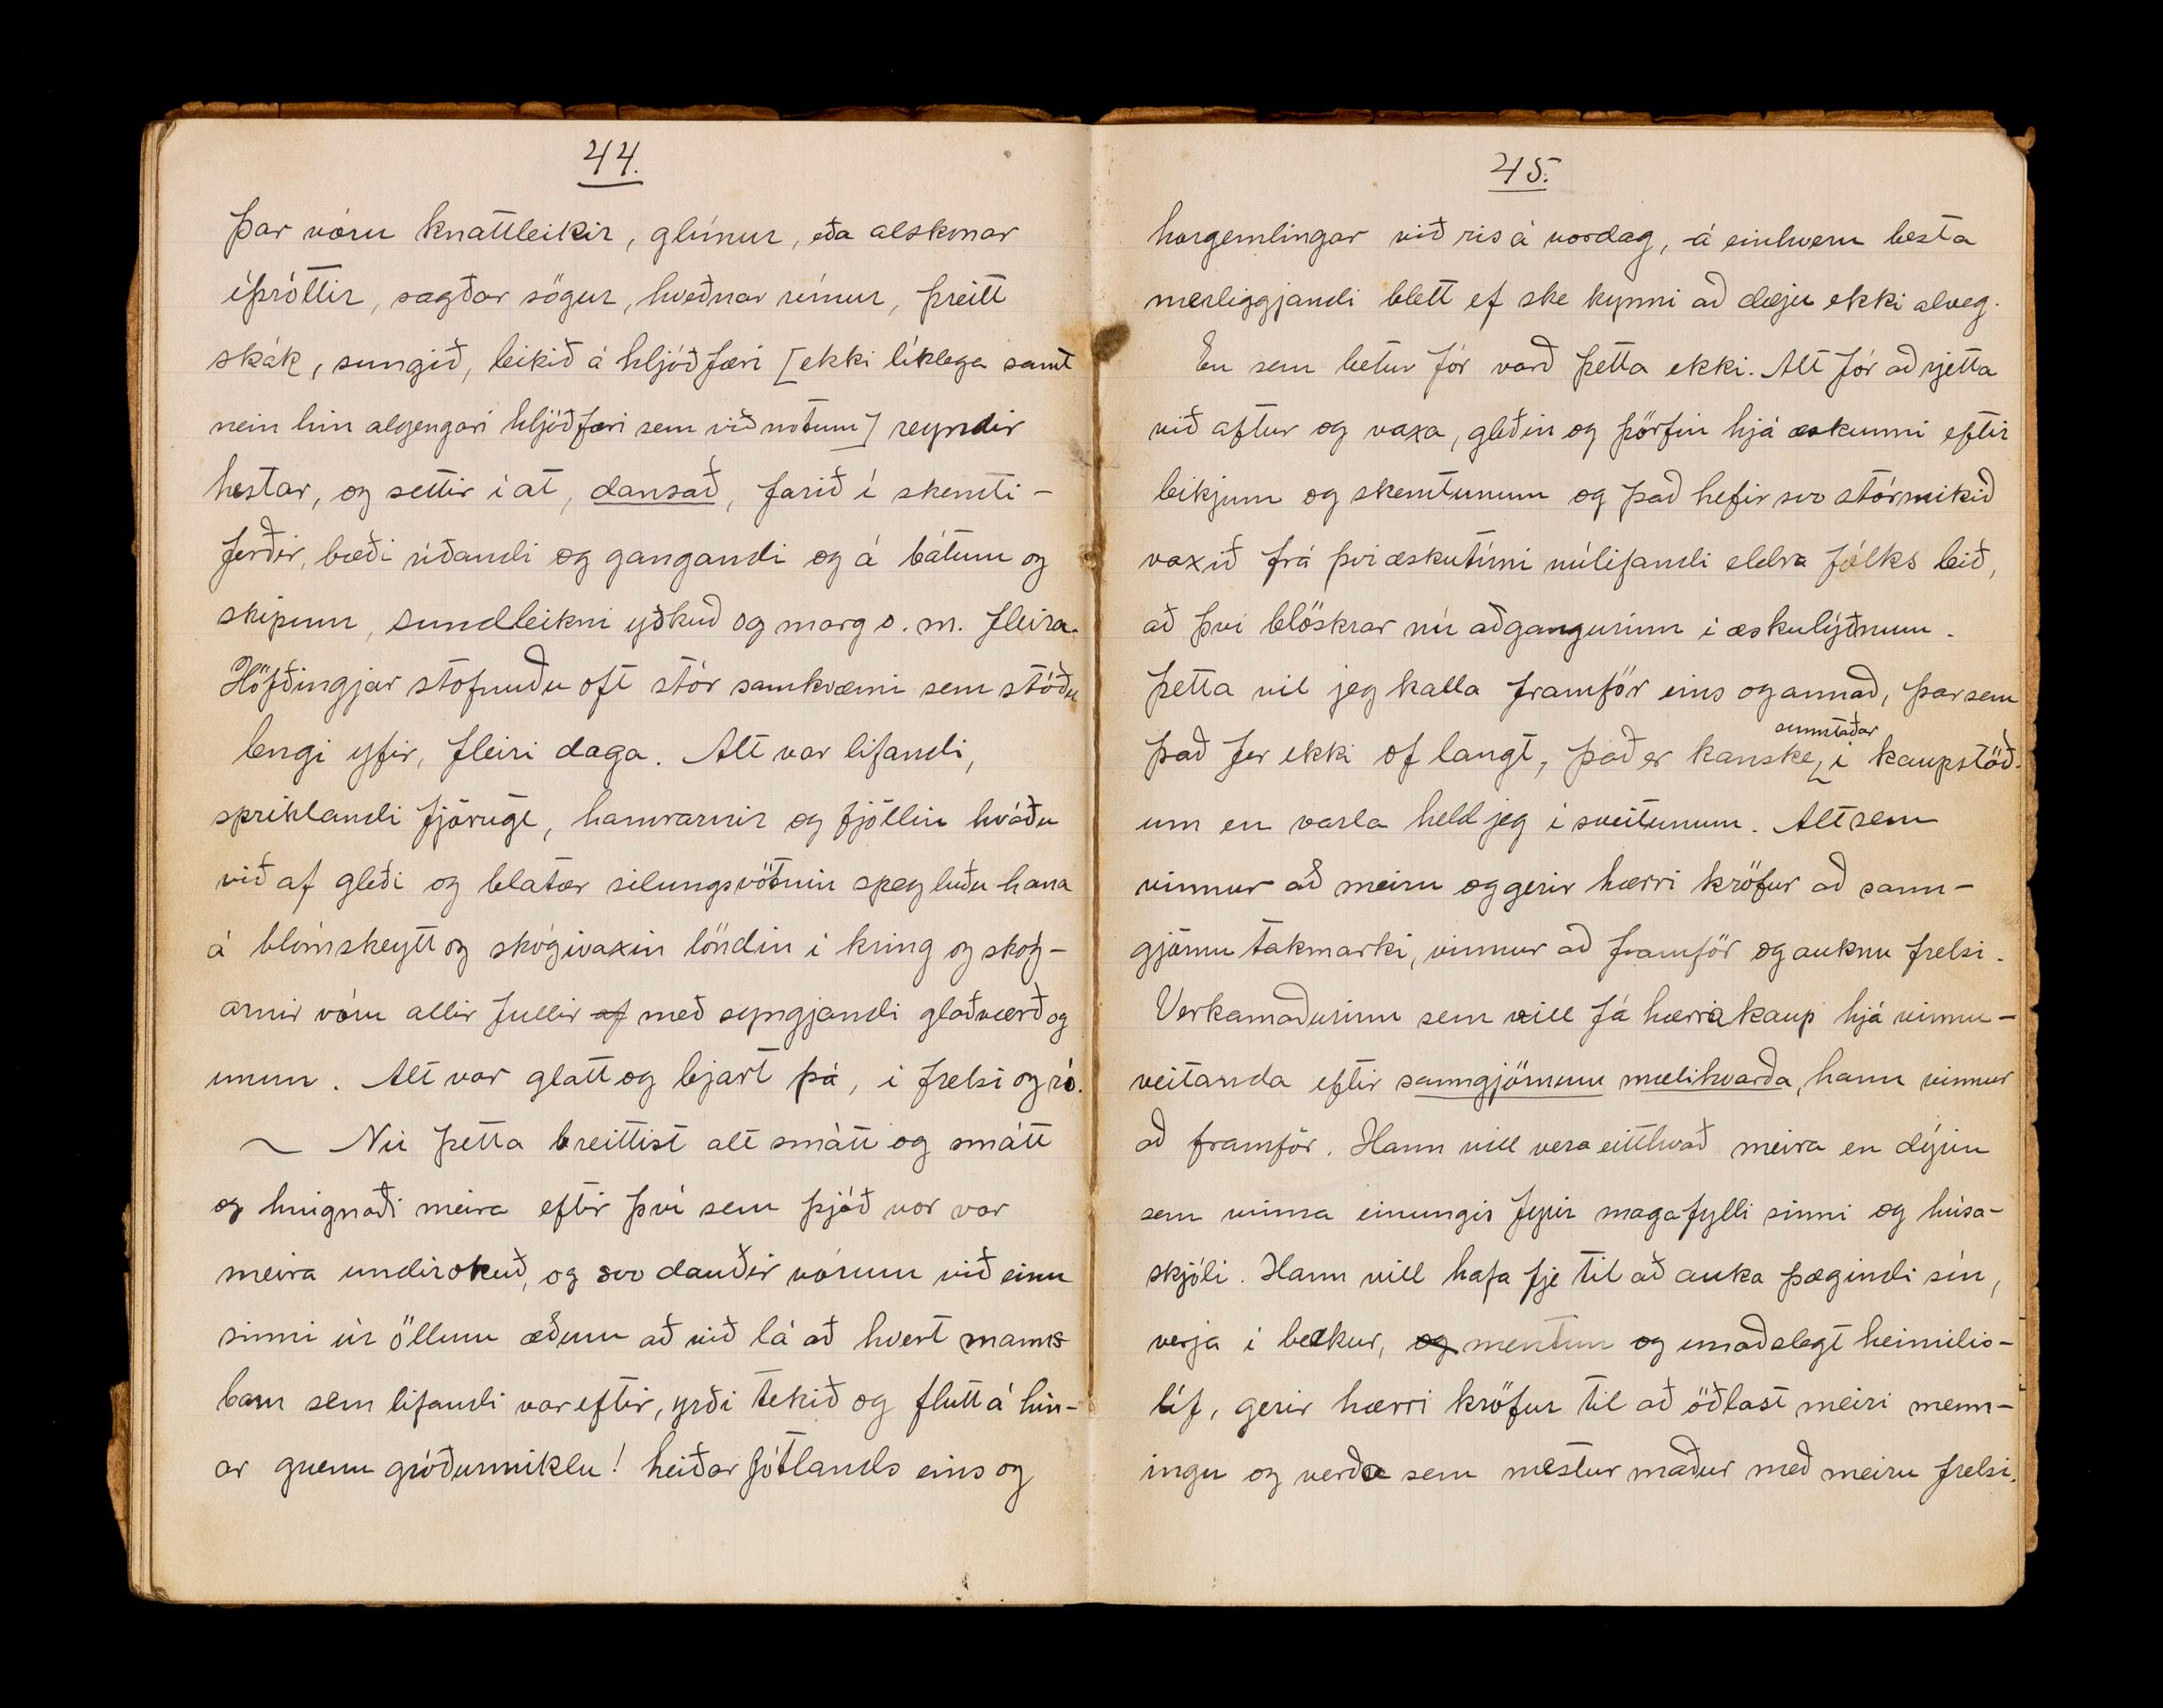 44.
Þar vóru knattleikir, glímur, eða alskonar
íþróttir, sagðar sögur, kveðnar rímur, þreitt
skák, sungið, leikið á hljóðfæri [ekki líklega samt
nein hin algengari hljóðfæri sem við notum] reyndir
hestar, og settir í at, dansað, farið í skemti-
ferðir, bæði ríðandi og gangandi og á bátum og
skipum, sundleikni yðkuð og marg o. m. fleira.
Höfðingjar stofnuðu oft stór samkvæmi sem stóðu
lengi yfir, fleiri daga. Alt var lifandi,
spriklandi fjörugt, hamrarnir og fjöllin kváðu
við af gleði og blatær silungsvötnin spegluðu hana
á blómskeytt og skógivaxin löndin í kring og skóg-
arnir vóru allir fullir af með syngjandi glaðværð og
unun. Alt var glatt og bjart þá, í frelsi og ró.
~ Nú þetta breittist alt smátt og smátt
og hnignaði meira eftir því sem þjóð vor var
meira undirokuð, og svo dauðir vórum við einu
sinni úr öllum æðum að við lá að hvert manns
barn sem lifandi var eftir, yrði tekið og flutt á hin-
ar grænu gróðurmiklu! heiðar Jótlands eins og
45.
horgemlingar við ris á vordag, á einhvern besta
nærliggjandi blett ef ske kynni að dæju ekki alveg.
En sem betur fór varð þetta ekki. Alt fór að rjetta
við aftur og vaxa, gleðin og þörfin hjá æskunni eftir
leikjum og skemtunum og það hefir svo stórmikið
vaxið frá því æskutími núlifandi eldra fólks leið,
að því blöskrar nú aðgangurinn í æskulýðnum.
Þetta vil jeg kalla framför eins og annað, þar sem
sumstaðar
það fer ekki of langt, það er kanske í kaupstöð-
um en varla held jeg í sveitunum. Alt sem
vinnur að meiru og gerir hærri kröfur að sann-
gjörnu takmarki, vinnur að framför og auknu frelsi.
Verkamaðurinn sem vill fá hærra kaup hjá vinnu-
veitanda eftir sanngjörnum mælikvarða, hann vinnur
að framför. Hann vill vera eitthvað meira en dýrin
sem vinna einungis fyrir magafylli sinni og húsa-
skjóli. Hann vill hafa fje til að auka þægindi sín,
verja í bækur, og mentun og unaðslegt heimilis-
líf, gerir hærri kröfur til að öðlast meiri menn-
ingu og verða sem mestur maður með meiru frelsi.